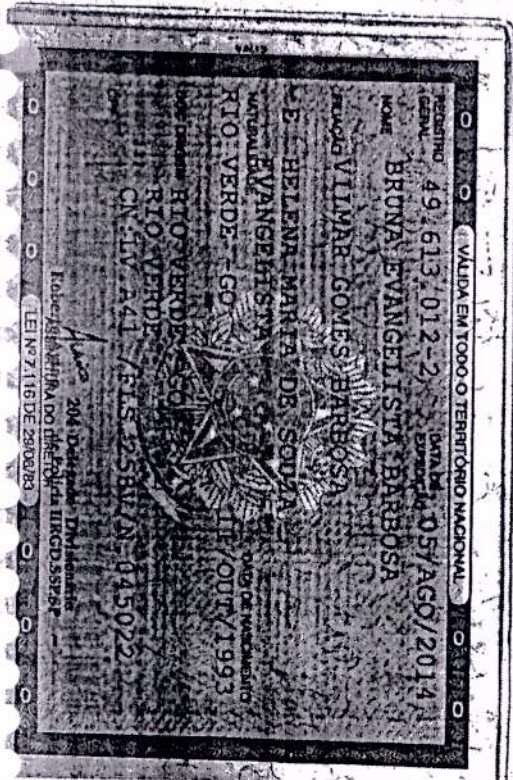 VÁLIDA EM TODO O TERRITÓRIO NACIONAL
REGISTRO GERAL 49.613.012-2 DATA DE EXPEDIÇÃO 05/AGO/2014
NOME BRUNA EVANGELISTA BARBOSA
FILIAÇÃO VILMAR GOMES BARBOSA
E HELENA MARIA DE SOUZA
EVANGELISTA
NATURALIDADE RIO VERDE -GO DATA DE NASCIMENTO /OUT/1993
DOC ORIGEM RIO VERDE-GO
RIO VERDE
CN:LV A41 /N-045022
CPF
204 Delegado Divisionário
ASSINATURA DO DIRETOR
LEI Nº 7.116 DE 29/08/83